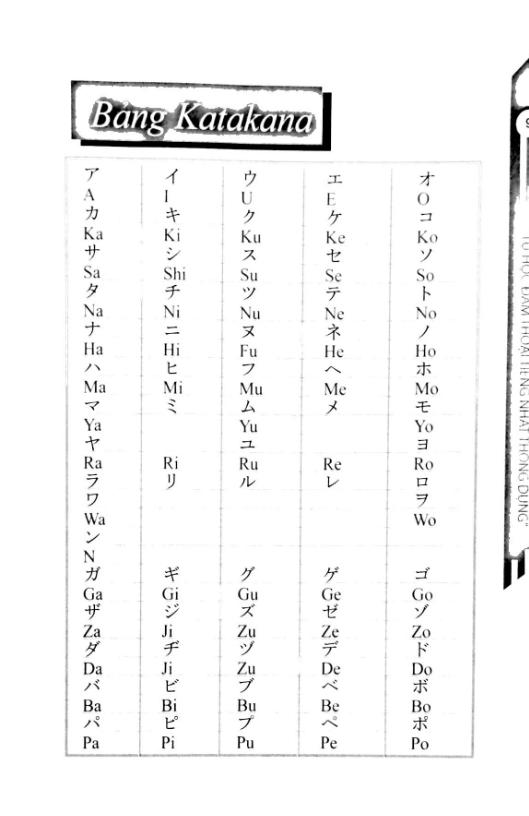 Bảng Katakana
ア イ ウ エ オ
A I U E O
カ キ ク ケ コ
Ka Ki Ku Ke Ko
サ シ ス セ ソ
Sa Shi Su Se So
タ チ ツ テ ト
Na Ni Nu Ne No
ナ ニ ヌ ネ ノ
Ha Hi Fu He Ho
ハ ヒ フ ヘ ホ
Ma Mi Mu Me Mo
マ ミ ム メ モ
Ya Yu Yo
ヤ ユ ヨ
Ra Ri Ru Re Ro
ラ リ ル レ ロ
ワ ヲ
Wa Wo
ン
N
ガ ギ グ ゲ ゴ
Ga Gi Gu Ge Go
ザ ジ ズ ゼ ゾ
Za Ji Zu Ze Zo
ダ ヂ ヅ デ ド
Da Ji Zu De Do
バ ビ ブ ベ ボ
Ba Bi Bu Be Bo
パ ピ プ ペ ポ
Pa Pi Pu Pe Po
TỰ HỌC "ĐÀM THOẠI TIẾNG NHẬT THÔNG DỤNG"